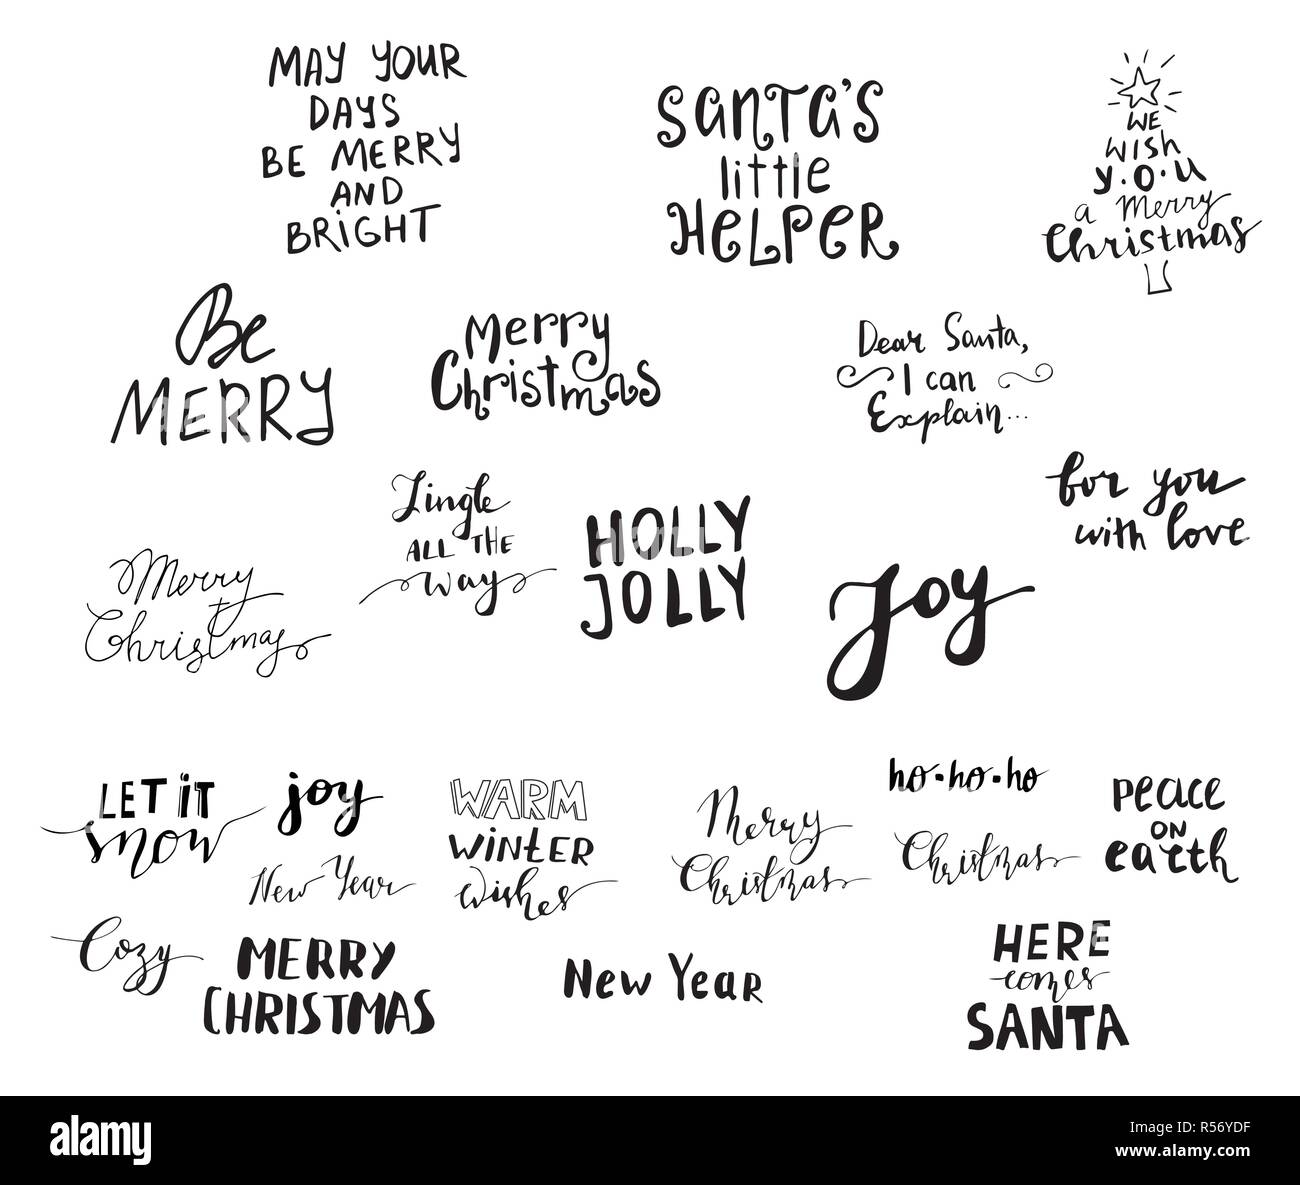 MAY YOUR
DAYS
BE MERRY
AND
BRiGHT
SANTA'S
little
HELPER
WE
WISH
Y.O.U
a Merry
Christmas
Be
MERRY
Merry
Christmas
Dear Santa,
I can
Explain...
Jingle
ALL THE
Way
HOLLY
JOLLY
for you
with love
Merry
Christmas
Joy
LET iT
snow
joy
New Year
WARM
WiNTER
wishes
Merry
Christmas
ho-ho-ho
Christmas
PEACE
ON
earth
Cozy
MERRY
CHRISTMAS
New Year
HERE
comes
SANTA
alamy
Image ID: R56YDF
www.alamy.com